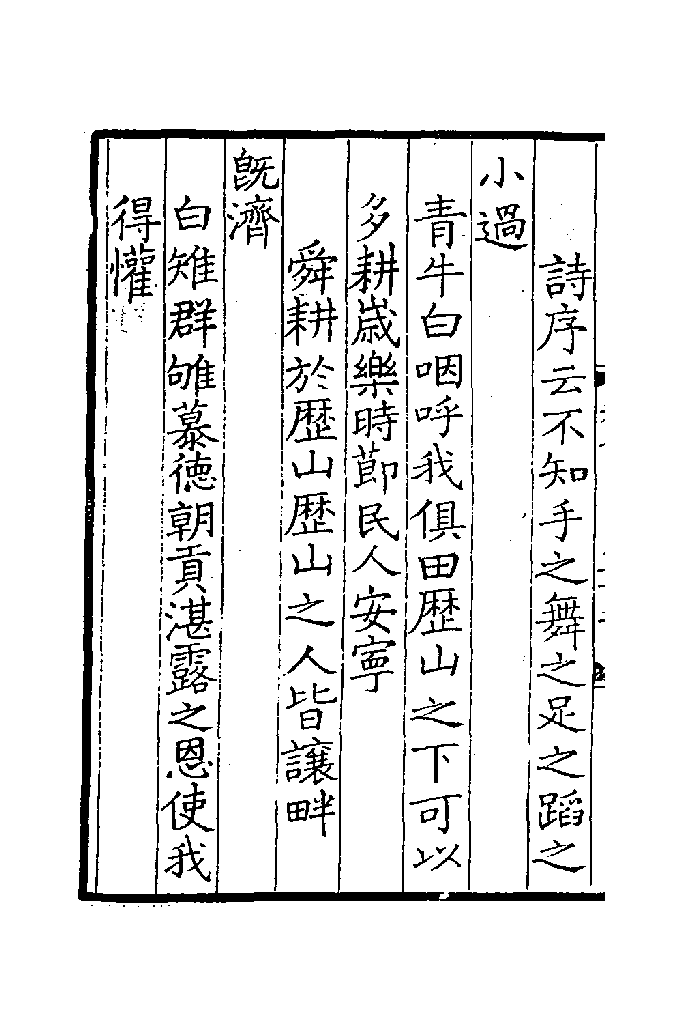 詩序云不知手之舞之足之蹈之
小過
青牛白咽呼我俱田歴山之下可以
多耕歳樂時節民人安寧
舜耕於歴山歴山之人皆讓畔
既濟
白雉群雊慕德朝貢湛露之恩使我
得懽